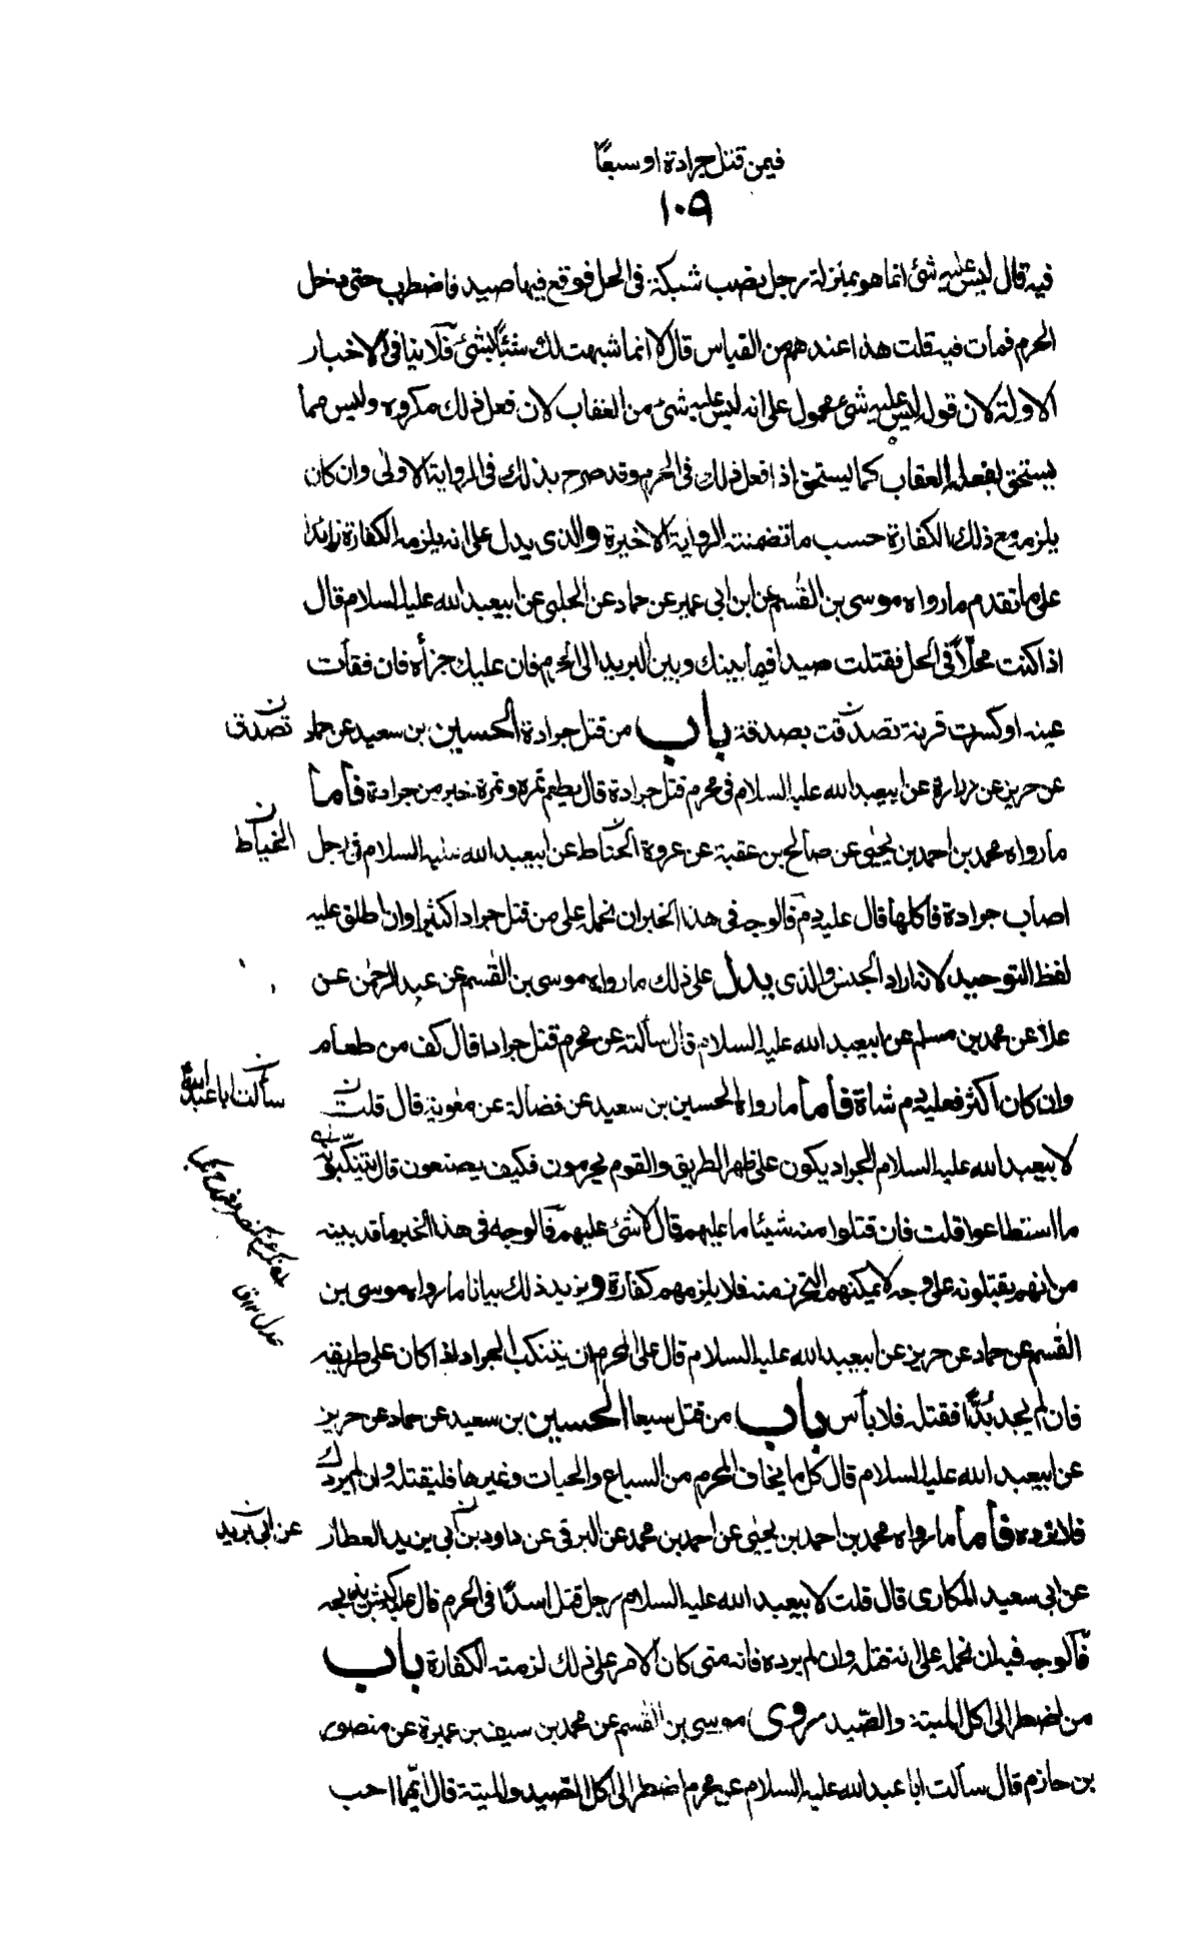 فيمن قتل جرادة او سبعًا
١٠٩
فيه قال ليس عليه شئ انما هو بمنزلة رجل نصب شبكة فى الحل فوقع فيها صيد فاضطرب حتى دخل
الحرم فمات فيه قلت هذا عندهم من القياس قال لا انما شبهت لك شيئًا بشئ فلا ينافى الاخبار
الاولة لان قوله ليس عليه شئ محمول على انه ليس عليه شئ من العقاب لان فعل ذلك مكروه وليس مما
يستحق بفعله العقاب كما يستحق اذا فعل ذلك فى الحرم وقد صرح بذلك فى الرواية الاولى وان كان
يلزمه مع ذلك الكفارة حسب ما تضمنته الرواية الاخيرة والذى يدل على انه يلزمه الكفارة زائدا
على ما تقدم ما رواه موسى بن القسم عن ابن ابى عمير عن حماد عن الحلبى عن ابيعبد الله عليه السلام قال
اذا كنت محلًّا فى الحل فقتلت صيدا فيما بينك وبين البريد الى الحرم فان عليك جزاه فان فقأت
عينه او كسرت قرنه تصدقت بصدقة باب من قتل جرادة الحسين بن سعيد عن حماد
تصدق
عن حريز عن زرارة عن ابيعبد الله عليه السلام فى محرم قتل جرادة قال يطعم تمرة وتمرة خير من جرادة فأما
ما رواه محمد بن احمد بن يحيى عن صالح بن عقبة عن عروة الحناط عن ابيعبد الله عليه السلام فى رجل
الخياط
اصاب جرادة فاكلها قال عليه دم فالوجه فى هذا الخبر ان نحمله على من قتل جرادا كثيرا وان اطلق عليه
لفظ التوحيد لانه اراد الجنس والذى يدل على ذلك ما رواه موسى بن القسم عن عبد الرحمن عن
علا عن محمد بن مسلم عن ابيعبد الله عليه السلام قال سألته عن محرم قتل جرادا قال كف من طعام
وان كان اكثر فعليه دم شاة فأما ما رواه الحسين بن سعيد عن فضالة عن معوية قال قلت
سألت ابا عبد الله
لابيعبد الله عليه السلام الجراد يكون على ظهر الطريق والقوم محرمون فكيف يصنعون قال يتنكبونه
ما استطاعوا قلت فان قتلوا منه شيئا ما عليهم قال لا شئ عليهم فالوجه فى هذا الخبر ما قد بينه
من انهم يقتلونه على وجه لا يمكنهم التحرز منه فلا يلزمهم كفارة ويزيد ذلك بيانا ما رواه موسى بن
القسم عن حماد عن حريز عن ابيعبد الله عليه السلام قال على المحرم ان يتنكب الجراد اذا كان على طريقه
فان لم يجد بُدًّا فقتله فلا بأس باب من قتل سبعا الحسين بن سعيد عن حماد عن حريز
عن ابيعبد الله عليه السلام قال كل ما يخاف المحرم من السباع والحيات وغيرها فليقتله وان لم يردك
فلا ترده فأما ما رواه محمد بن احمد بن يحيى عن احمد بن محمد عن البرقى عن داود بن ابى يزيد العطار
عن ابى يزيد
عن ابى سعيد المكارى قال قلت لابيعبد الله عليه السلام رجل قتل اسدًا فى الحرم قال عليه كبش يذبحه
فالوجه فيه ان نحمله على انه قتله وان لم يرده فانه متى كان الامر على ذلك لزمته الكفارة باب
من اضطر الى اكل الميتة والصّيد روى موسى بن القسم عن محمد بن سيف بن عميرة عن منصور
بن حازم قال سألت ابا عبد الله عليه السلام عن محرم اضطر الى اكل الصّيد والميتة قال ايّهما احب